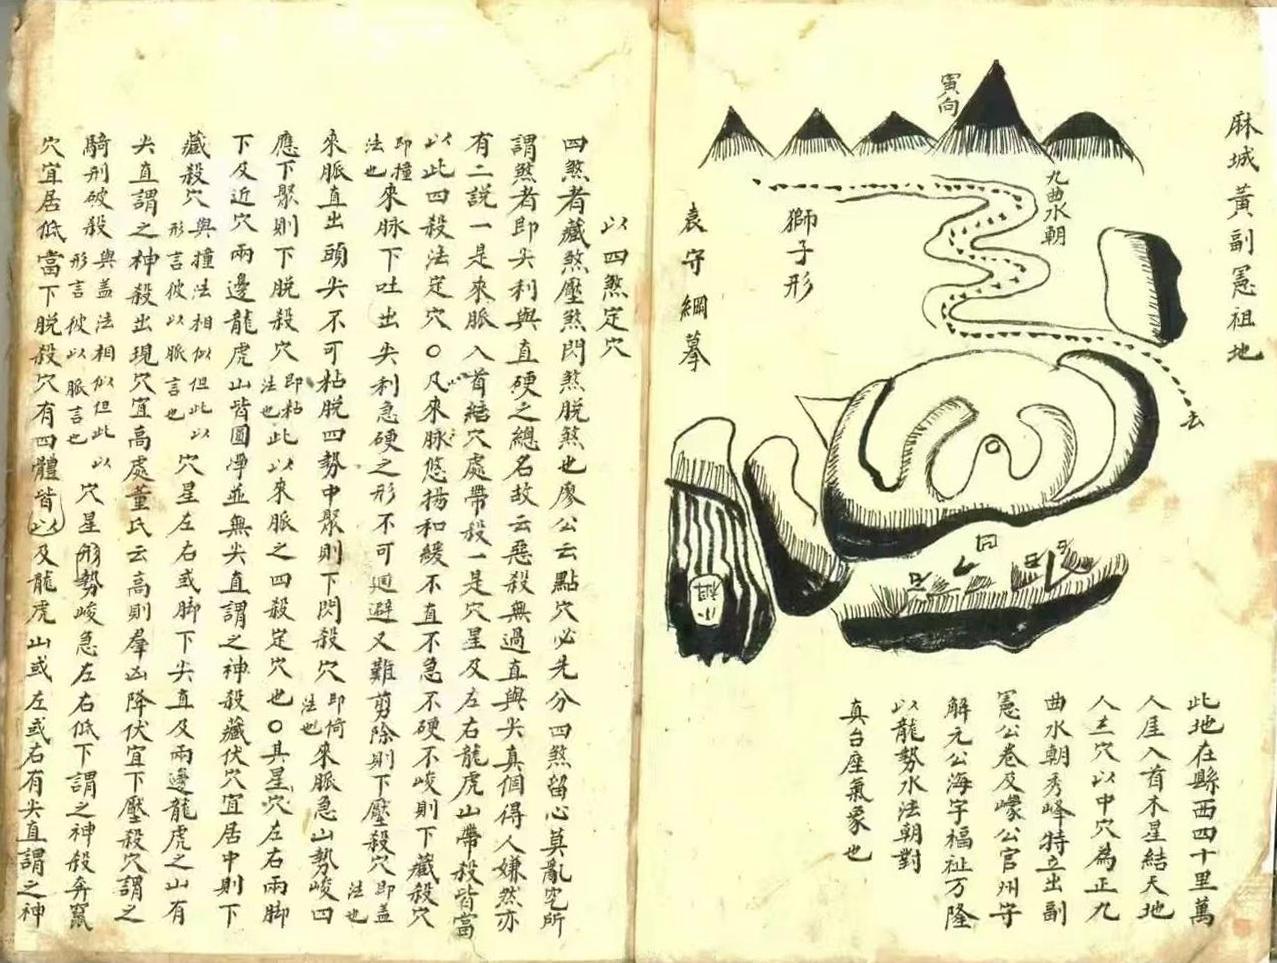 麻城黃副憲祖地
寅向
九曲水朝
獅子形
袁守綱摹
去
小祖
此地在縣西四十里萬
人崖入首木星結天地
人三穴以中穴為正九
曲水朝秀峰特立出副
憲公卷及嶸公官州守
解元公海字福祉万隆
以龍勢水法朝對
真台座氣象也
以四煞定穴
四煞者藏煞壓煞閃煞脱煞也廖公云點穴必先分四煞留心莫亂究所
謂煞者即尖利與直硬之總名故云惡殺無過直與尖真個得人嫌然亦
有二説一是來脈入首結穴處帶殺一是穴星及左右龍虎山帶殺皆當
以此四殺法定穴〇凡來脉悠揚和緩不直不急不硬不峻則下藏殺穴
即撞法也來脉下吐出尖利急硬之形不可迴避又難剪除則下壓殺穴即盖法也
來脈直出頭尖不可粘脱四勢中聚則下閃殺穴即倚法也來脈急山勢峻四
應下聚則下脱殺穴即粘法也此以來脈之四殺定穴也〇其星穴左右兩脚
下及近穴兩邊龍虎山皆圓淨並無尖直謂之神殺藏伏穴宜居中則下
藏殺穴與撞法相似但此以形言彼以脈言也穴星左右或脚下尖直及兩邊龍虎之山有
尖直謂之神殺出現穴宜高處董氏云高則羣凶降伏宜下壓殺穴謂之
騎刑破殺與盖法相似但此以形言彼以脈言也穴星形勢峻急左右低下謂之神殺奔竄
穴宜居低當下脱殺穴有四體皆以及龍虎山或左或右有尖直謂之神